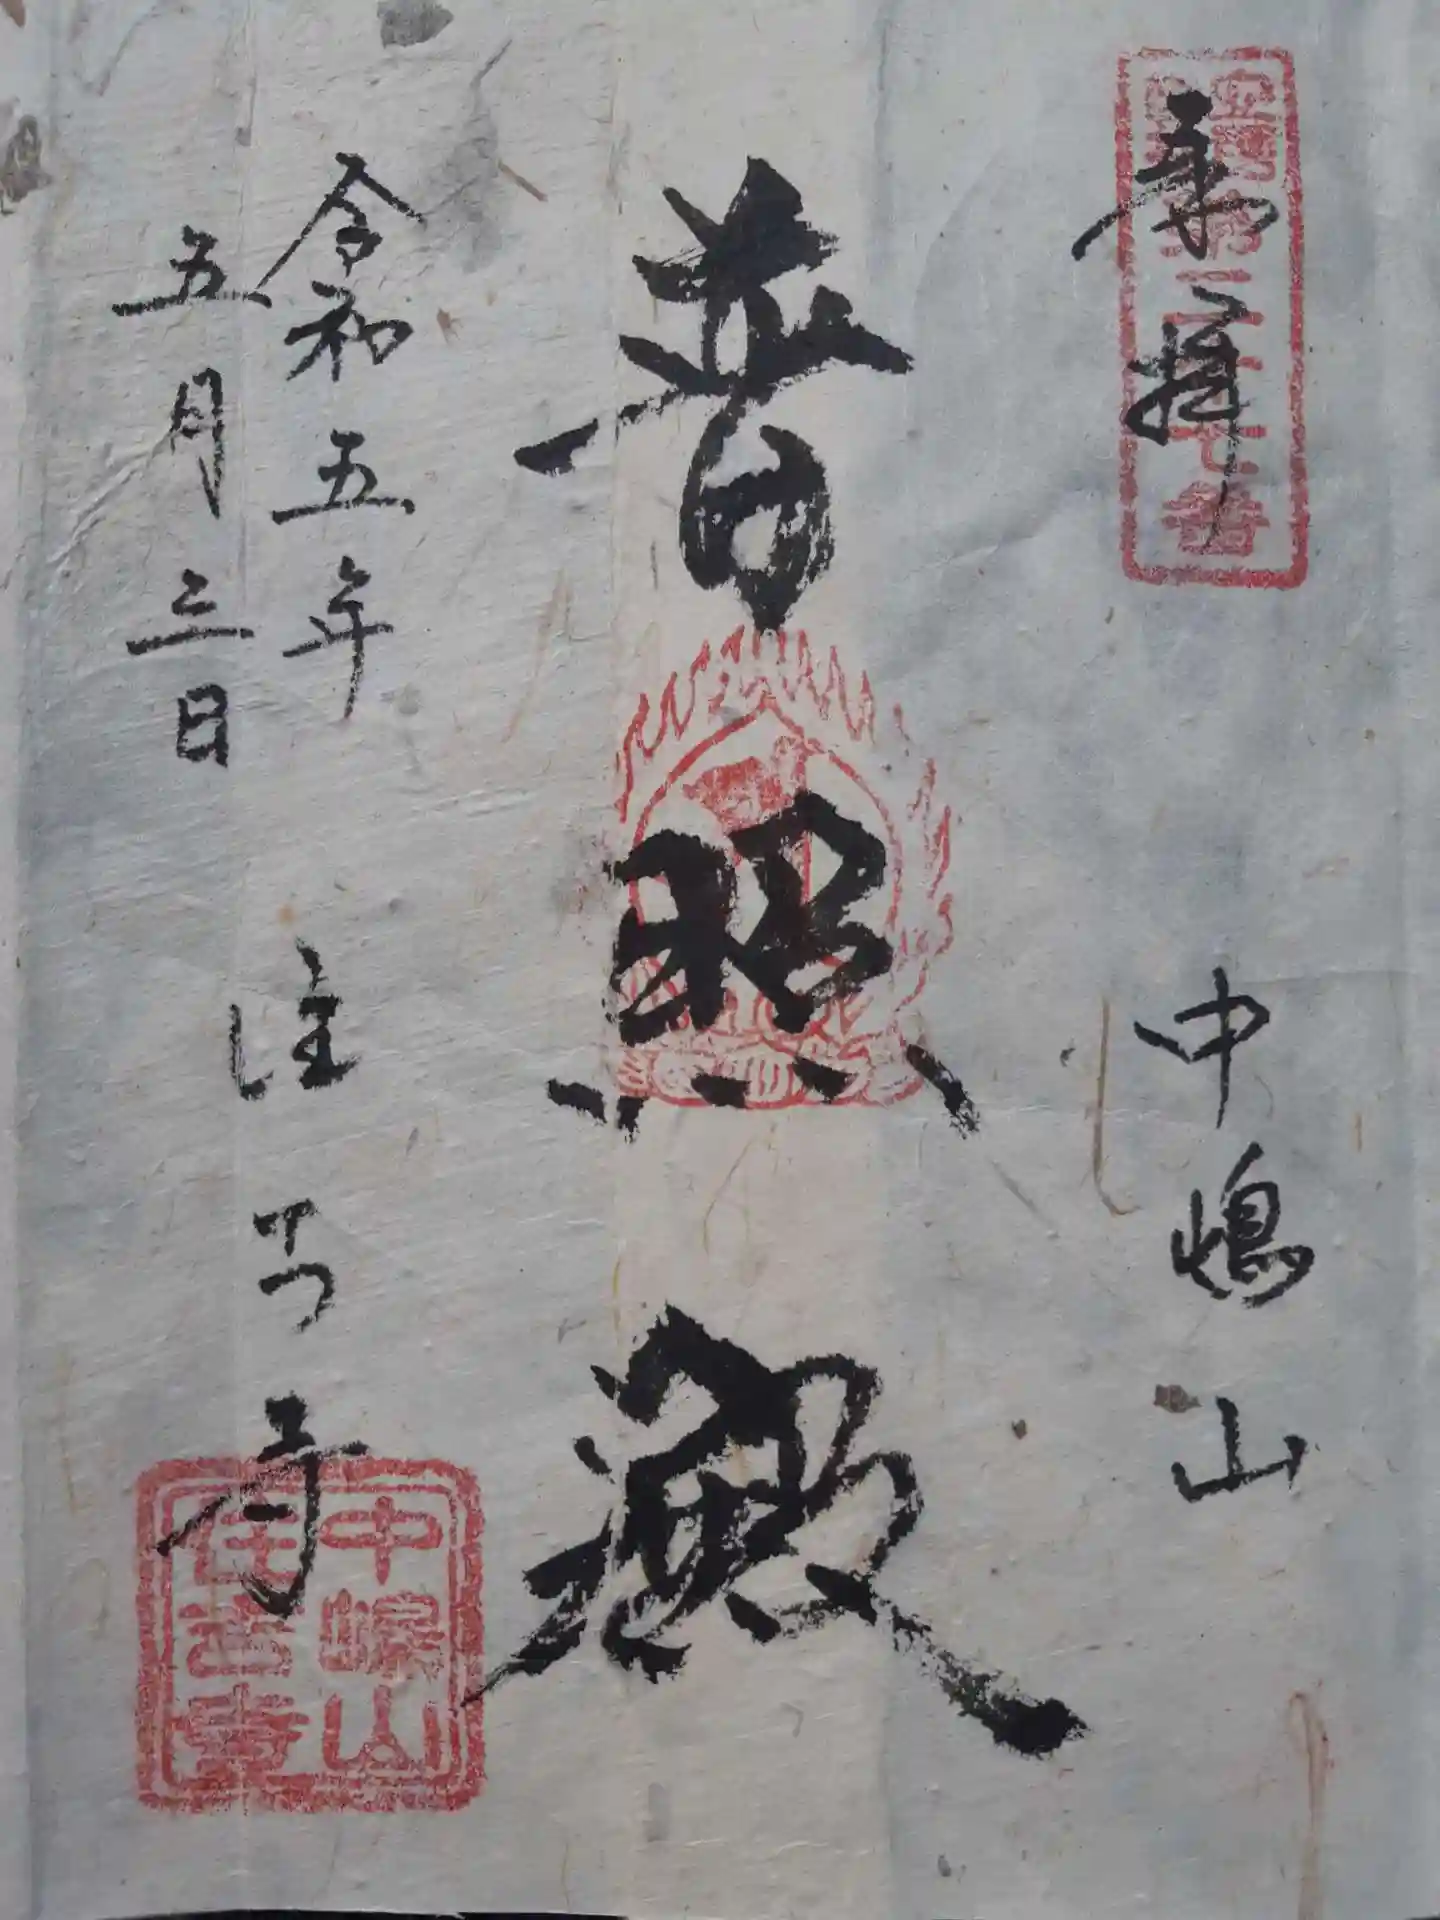 奉拝
第二十七番
中嶋山
普照殿
令和五年
五月三日
住吉寺
中嶋山
住吉寺